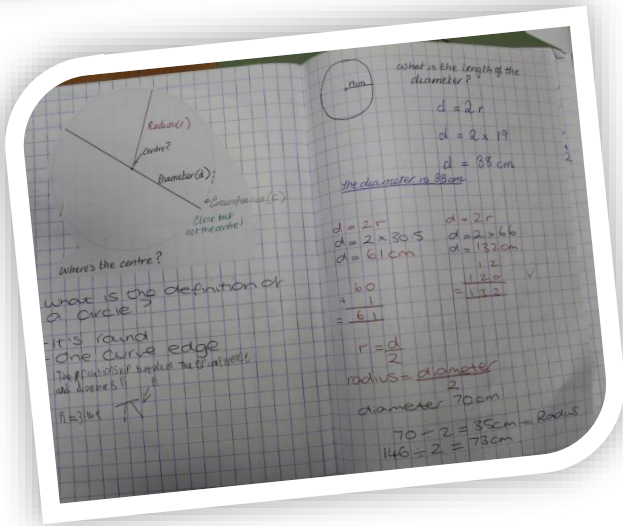 Radius(r)
Centre?
Diameter(d)?
Circumference(C)
Close but
not the centre!
Where's the centre?
What is the definition of
a circle?
-it's round
-one curve edge
What is the length of the
diameter?
d = 2r
d = 2 x 19
d = 38cm
The diameter is 38cm
d = 2r
d = 2 x 30.5
d = 61cm
60
+ 1
= 61
d = 2r
d = 2 x 66
d = 132cm
12
120
= 132
r = d
2
radius = diameter
2
diameter 70cm
70 ÷ 2 = 35cm = Radius
146 ÷ 2 = 73cm